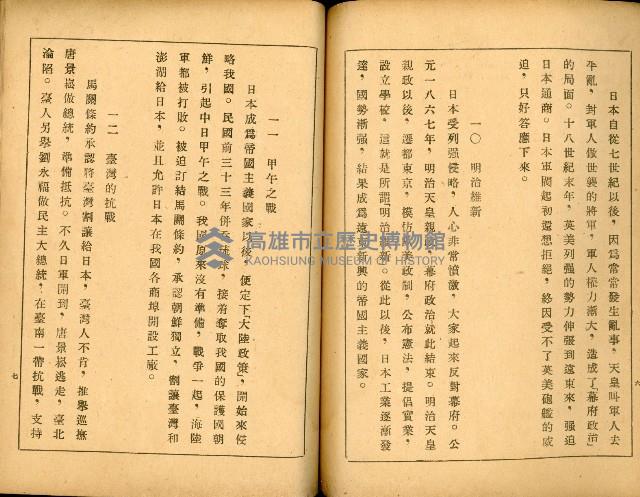 日本自從七世紀以後，因爲常常發生亂事，天皇叫軍人去
平亂，封軍人做世襲的將軍，軍人權力漸大，造成了「幕府政治」
的局面。十八世紀末年，英美列强的勢力伸張到遠東來，强迫
日本通商。日本軍閥起初還想拒絕，終因受不了英美砲艦的威
迫，只好答應下來。
一〇　明治維新
日本受列强侵略，人心非常憤激，大家起來反對幕府。公
元一八六七年，明治天皇親政，幕府政治就此結束。明治天皇
親政以後，遷都東京，模仿歐美政制，公布憲法，提倡實業，
設立學校，這就是所謂「明治維新」。從此以後，日本工業逐漸發
達，國勢漸强，結果成爲遠東新興的帝國主義國家。
六
一一　甲午之戰
日本成爲帝國主義國家以後，便定下「大陸政策」，開始來侵
略我國。民國前三十三年併吞琉球，接着奪取我國的保護國朝
鮮，引起中日甲午之戰。我國原來沒有準備，戰爭一起，海陸
軍都被打敗。被迫訂結馬關條約，承認朝鮮獨立，割讓臺灣和
澎湖給日本，並且允許日本在我國各商埠開設工廠。
一二　臺灣的抗戰
馬關條約承認將臺灣割讓給日本，臺灣人不肯，推舉巡撫
唐景崧做總統，準備抵抗。不久日軍開到，唐景崧逃走，臺北
淪陷。臺人另舉劉永福做民主大總統，在臺南一帶抗戰，支持
七
高雄市立歷史博物館
KAOHSIUNG MUSEUM OF HISTORY